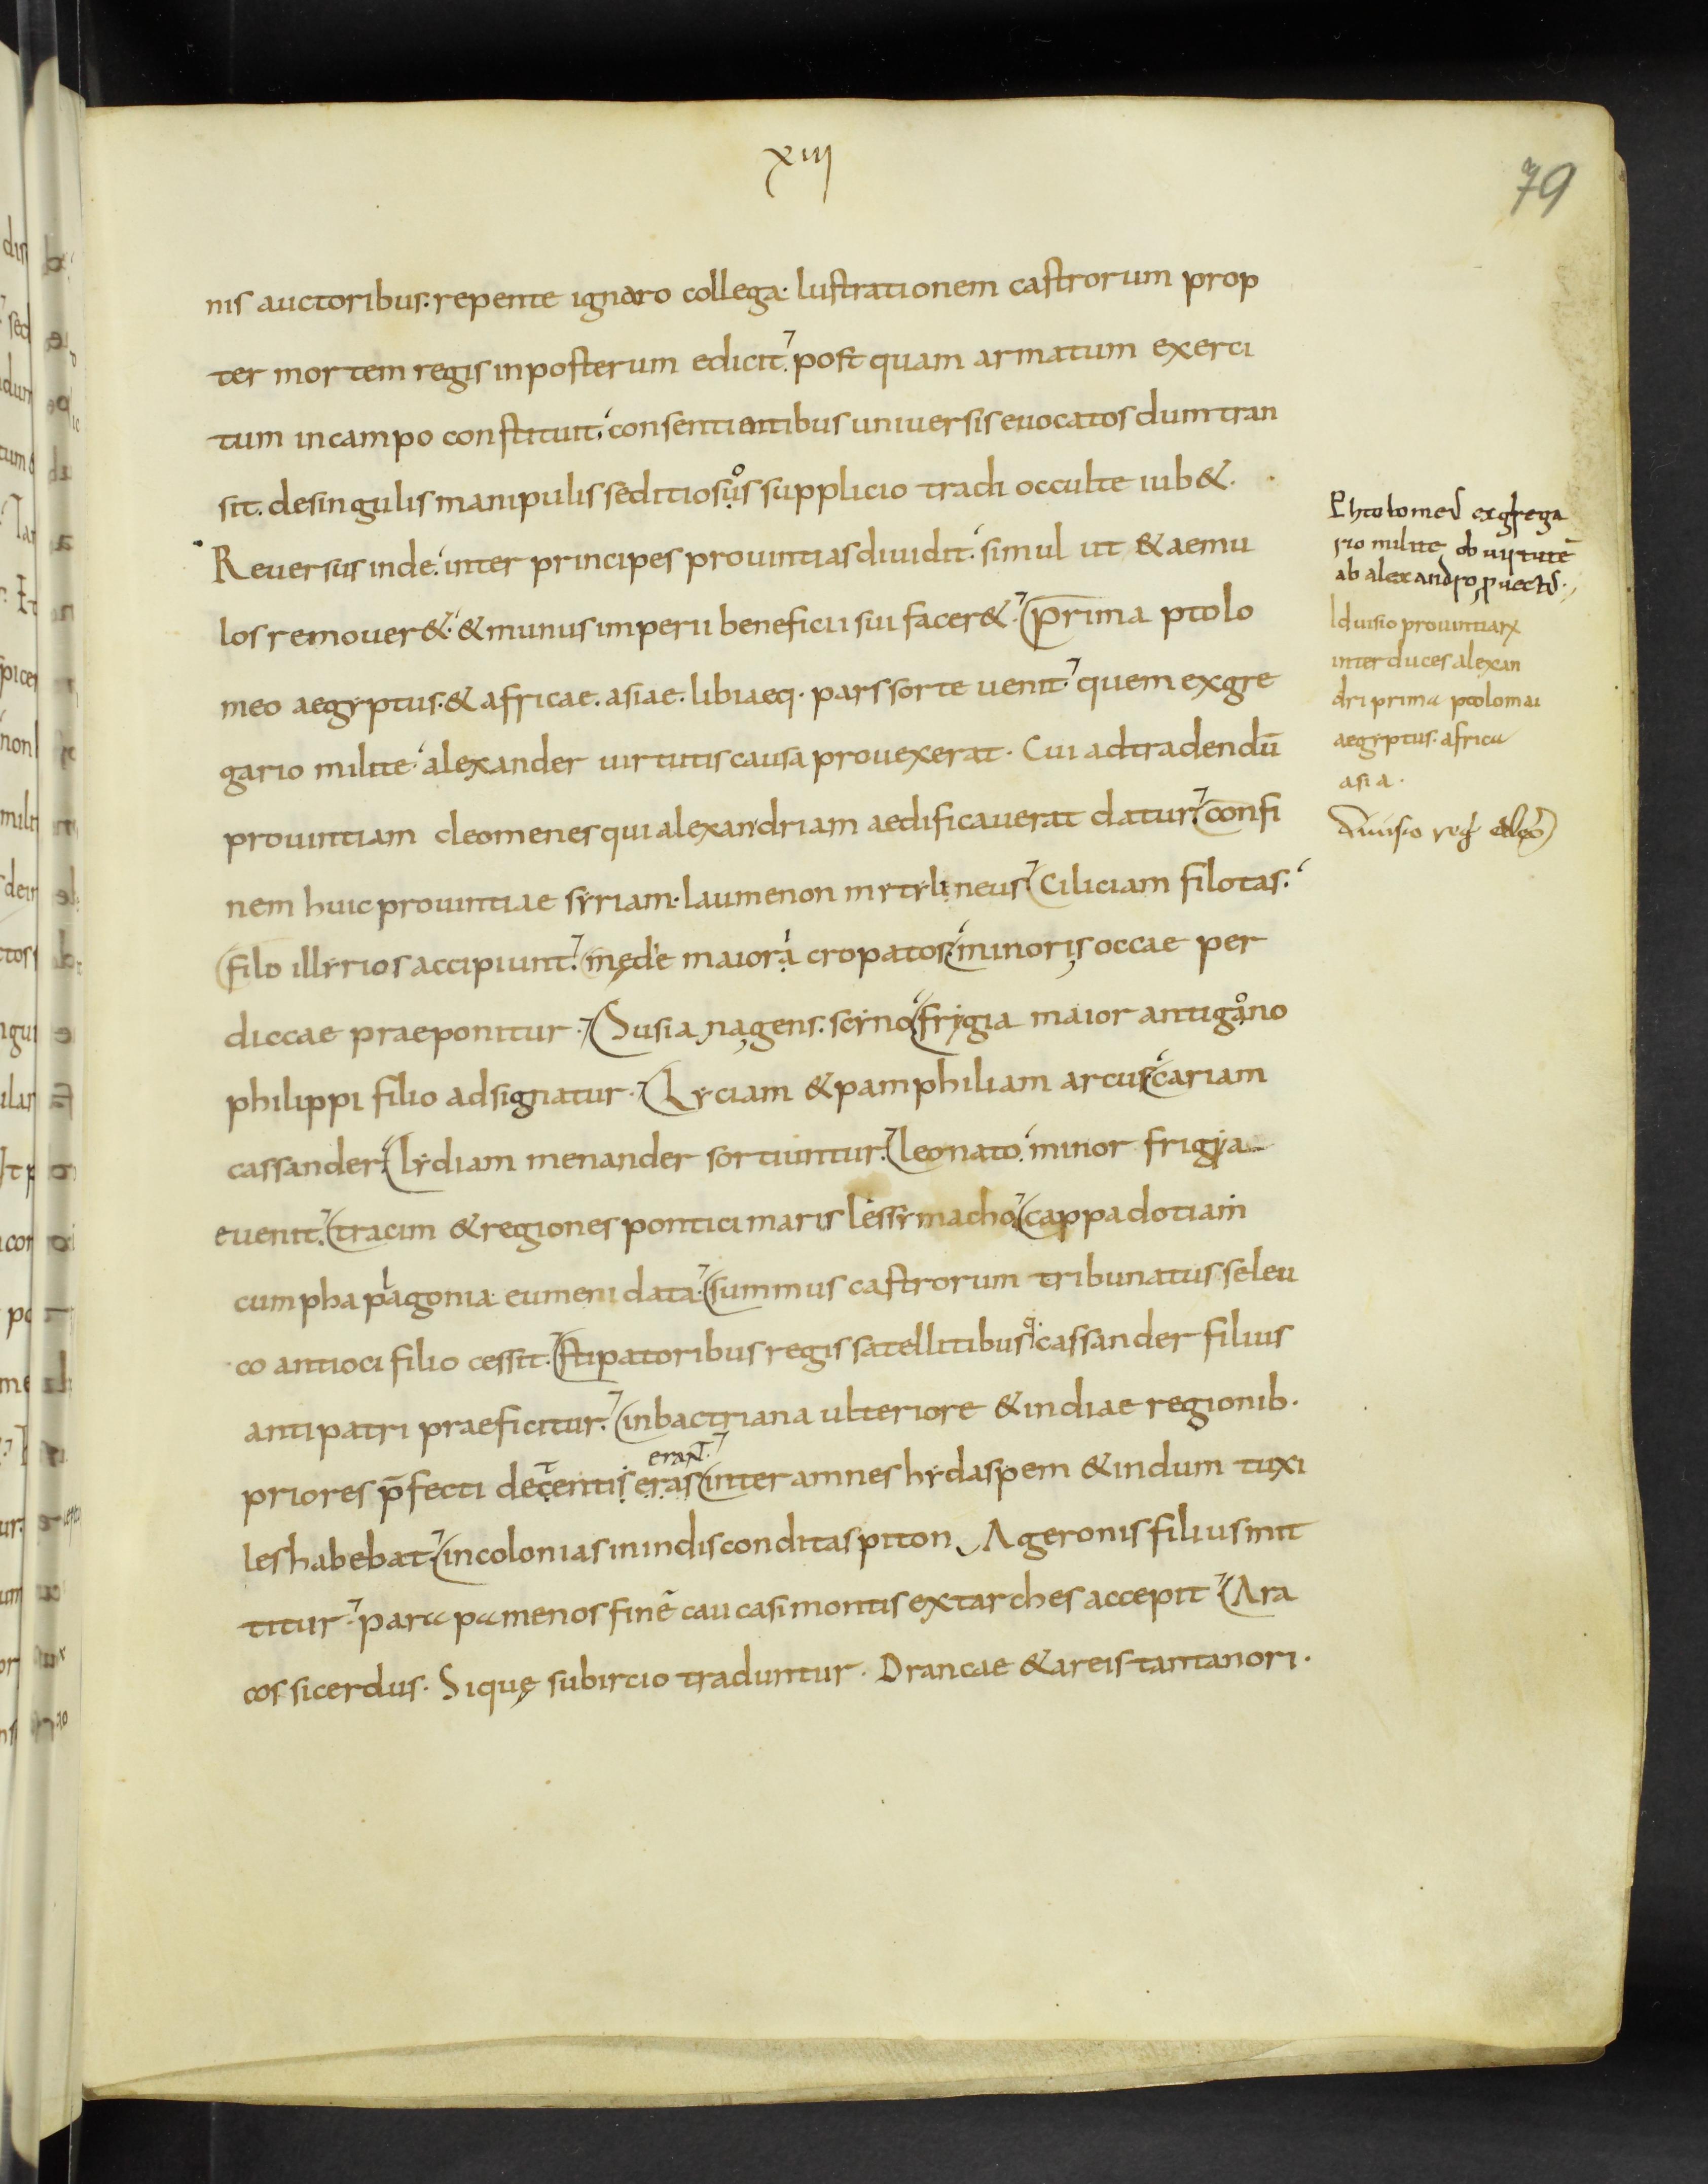 xiii
79
nis auctoribus. repente ignaro collega. lustrationem castrorum prop
ter mortem regis inposterum edicit. post quam armatum exerci
tum incampo constituit. consentientibus uniuersis euocatos dum tran
sit. desingulis manipulis seditiosus supplicio tradi occulte iub&.
Reuersus inde. inter principes prouintias diuidit. simul ut & aemu
los remouer&. & munus imperii beneficii sui facer&. prima ptolo
meo aegyptus. & africae. asiae. libiaeq. pars sorte uenit. quem exgre
gario milite alexander uirtutis causa prouexerat. Cui adtradendū
prouintiam cleomenes qui alexandriam aedificauerat datur. confi
nem huic prouintiae syriam. laumenon mytylineus. Ciliciam filotas.
filo illyrios accipiunt. mede maiori cropatos. minoris occae per
diccae praeponitur. Susia na gens. scyno. frygia maior antigono
philippi filio adsignatur. Lyciam & pamphiliam arcus. cariam
cassander. lydiam menander sortiuntur. leonato minor frigya
euenit. tracim & regiones pontici maris lessymacho. cappadotiam
cum phaplagonia eumeni data. summus castrorum tribunatus seleu
co antioci filio cessit. stipatoribus regis satellitibusq. cassander filius
antipatri praeficitur. inbactriana ulteriore & indiae regionib.
erant.
priores p̄fecti decentis eras inter amnes hydaspem & indum tuxi
les habebat. incolonias inindis conditas piton. Ageronis filius mit
titur. parapamenos finē caucasi montis extarches accepit. Ara
cossicerdus. Sique subircio traduntur. Drancae & areis tantanori.
Phtolomeus exgrega
rio milite ob uirtutē
ab alexandro puectus.
diuisio prouintiarx
inter duces alexan
dri prima ptolomai
aegyptus. africa
asia.
Diuisio reg